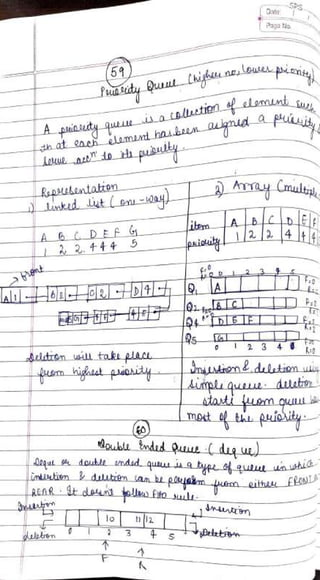 SPS
Date
Page No
59
Priority Queue (higher no, lower priority)
A priority queue is a collection of element such
that each element has been asigned a priority &
serve acc^n to its priority.
Representation
1) linked list (one-way)
A B C D E F G
1 2 2 4 4 4 5
front
A 1 B 2 C 2 D 4
G 5 F 4 E 4
Deletion will take place
from highest priority.
2) Array (multiple
item A B C D E F
priority 1 2 2 4 4 4
0 1 2 3 4 5
Q1 A
Q2 B C
Q4 D E F
Q5 G
0 1 2 3 4 5
Insertion & deletion using
simple queue. deletion
starts from queue
most of the priority.
60
Double Ended Queue (deque)
Deque or double ended queue is a type of queue in which
insertion & deletion can be perform from either FRONT
REAR. It doesn't follow FIFO rule.
Insertion Insertion
10 11 12
deletion 0 1 2 3 4 5 Deletion
F R